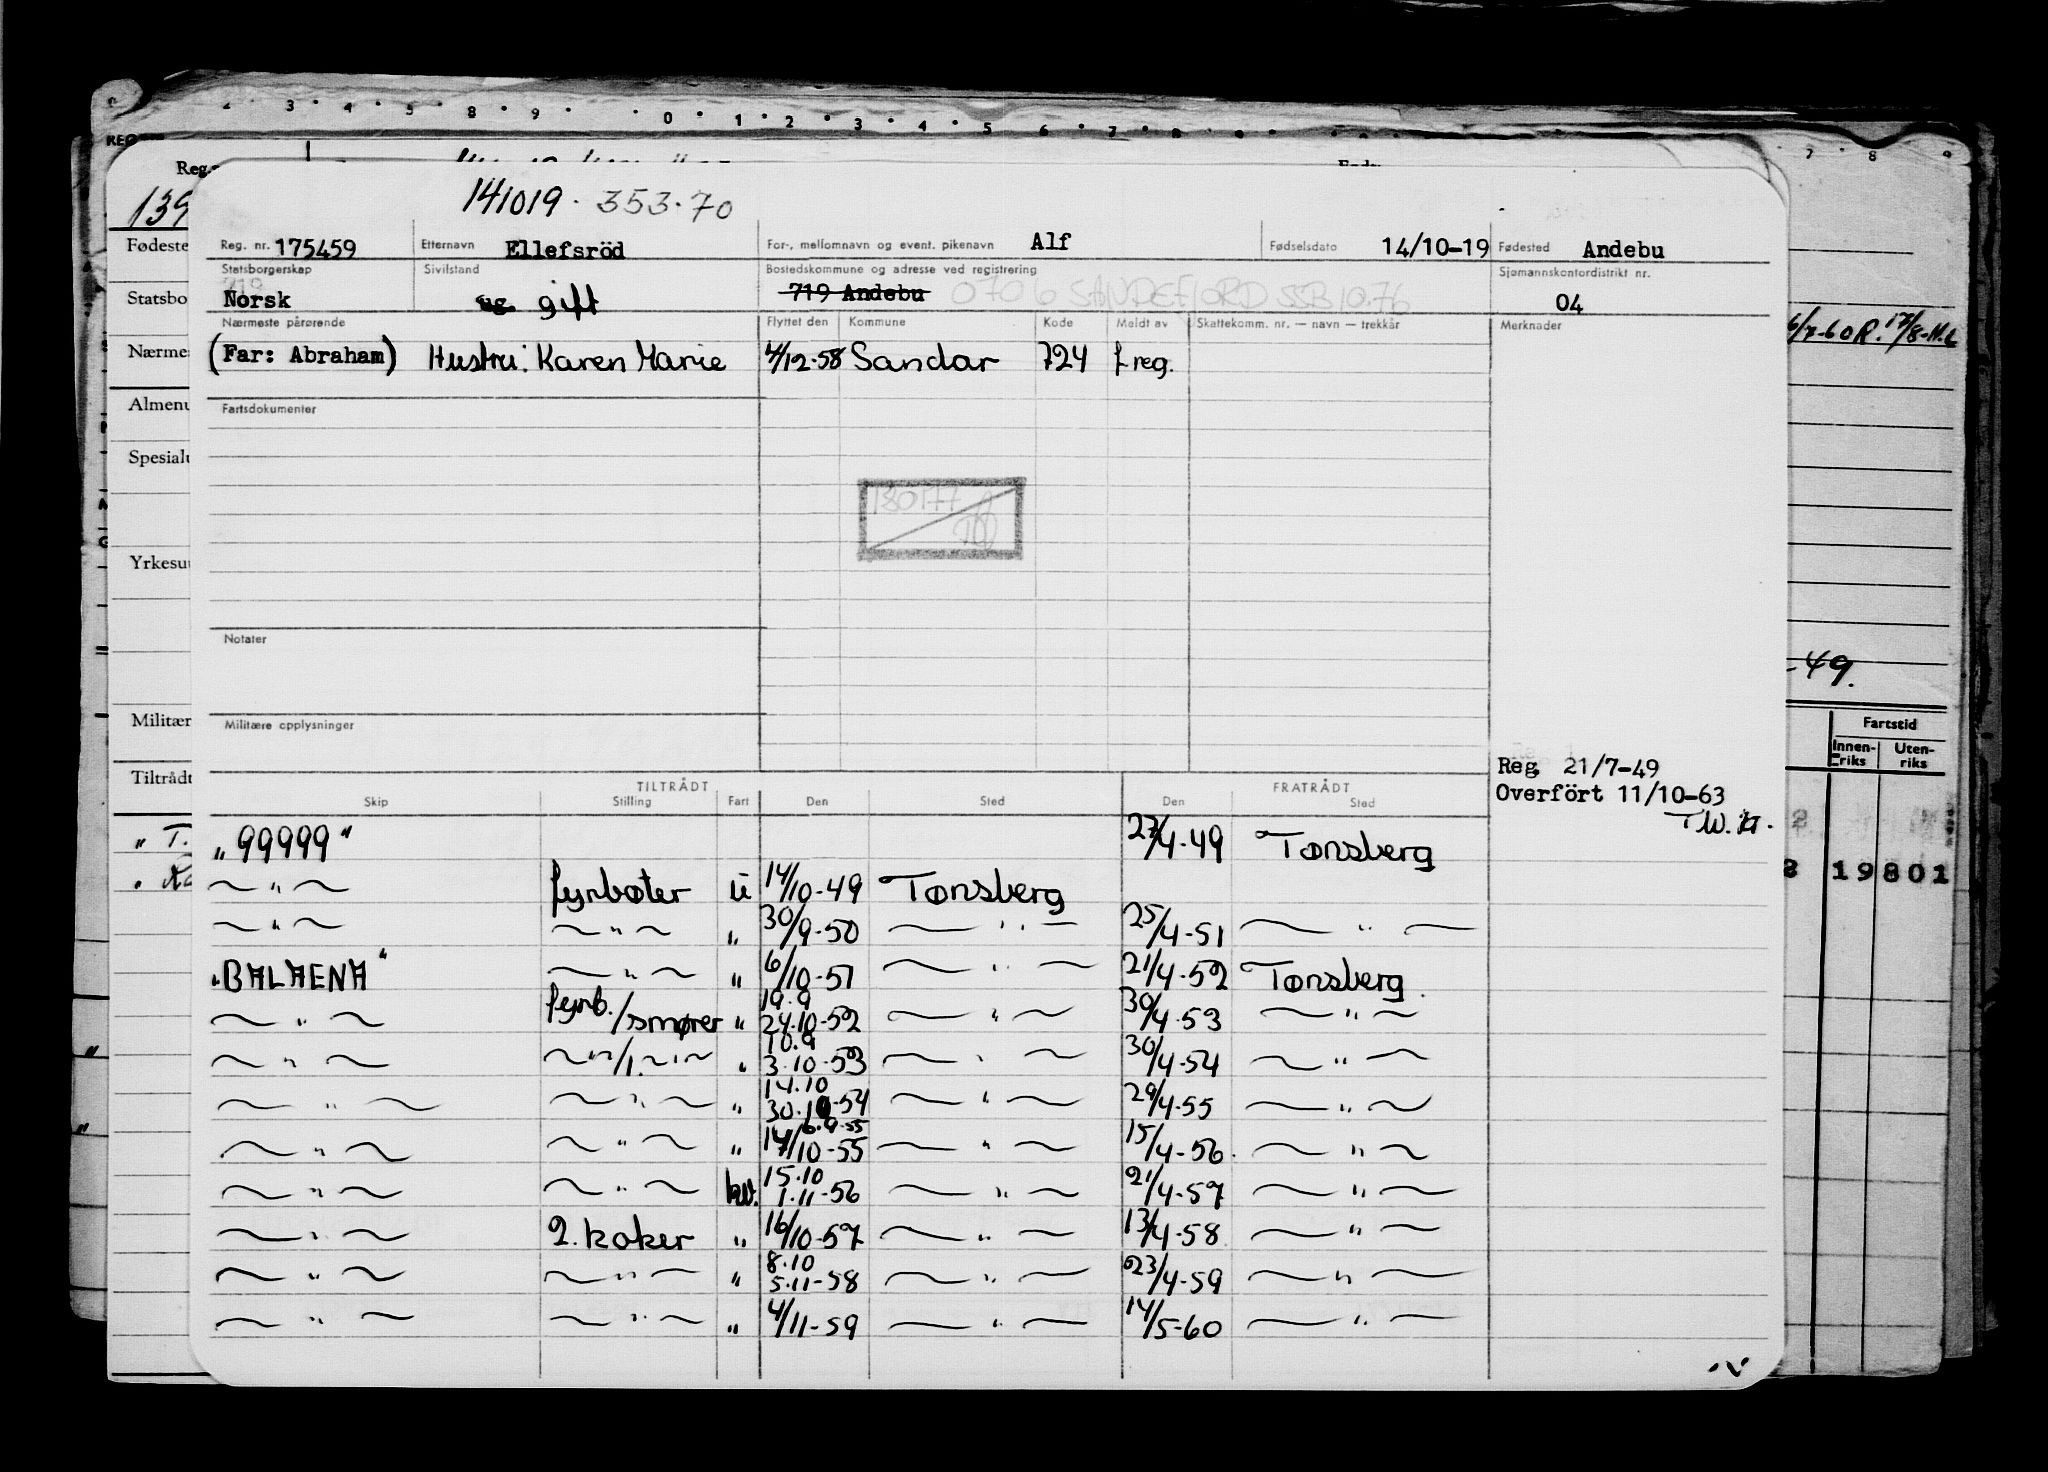 2 · 3 · 4 · 5 · 8 · 9 · 0 · 1 · 2 · 3 · 4 · 5 6 7 8 9 7 8 9
REG
Reg.
139
141019. 353.70
Fødeste Reg. nr. 175459 Etternavn Ellefsröd For-, mellomnavn og event. pikenavn Alf Fødselsdato 14/10-19 Fødested Andebu
Statsborgerskap Sivilstand Bostedskommune og adresse ved registrering Sjømannskontordistrikt nr.
719
Statsbo Norsk ug. gift 719 Andebu 0706 SANDEFJORD SSB 10.76 04
Nærmeste pårørende Flyttet den Kommune Kode Meldt av Skattekomm. nr. — navn — trekkår Merknader 6/7-60 R. 17/8-
Nærme (Far: Abraham) Hustru: Karen Marie 4/12-58 Sandar 724 f reg.
Almenu Fartsdokumenter
Spesialu
130177
Yrkesut
Notater
-49.
Militær Militære opplysninger Fartstid
Innen-riks Uten-riks
Reg 21/7-49
Tiltrådt TILTRÅDT FRATRÅDT
Skip Stilling Fart Den Sted Den Sted Overfört 11/10-63
T.W.
„ T. „99999" 27/4-49 Tønsberg
~ " ~ fyrbøter u 14/10-49 Tønsberg 8 19801
~ " ~ ~ " ~ " 30/9-50 — " — 25/4-51 — " —
„BALAENA" ~ " ~ " 6/10-51 — " — 21/4-52 Tønsberg.
~ " ~ fyrb./smører " 19.9 24.10-52 — " — 30/4-53 — " —
~ " ~ ~"~/1.~"~ " 10.9 3.10-53 — " — 30/4-54 ~ " ~
~ " ~ ~ " ~ " 14.10 30.10-54 — " — 29/4-55 — " ~
~ " ~ ~ " ~ " 6.9-55 14/10-55 — " — 15/4-56. ~ " ~
~ " ~ ~ " ~ kv. 15.10 1.11-56 — " — 21/4-57 — " —
~ " ~ 2. koker " 16/10-57 — " — 13/4-58 — " —
~ " ~ ~ " ~ " 8.10 5.11-58 — " — 23/4-59 — " —
~ " ~ ~ " ~ " 4/11-59 — " — 14/5-60 — " —